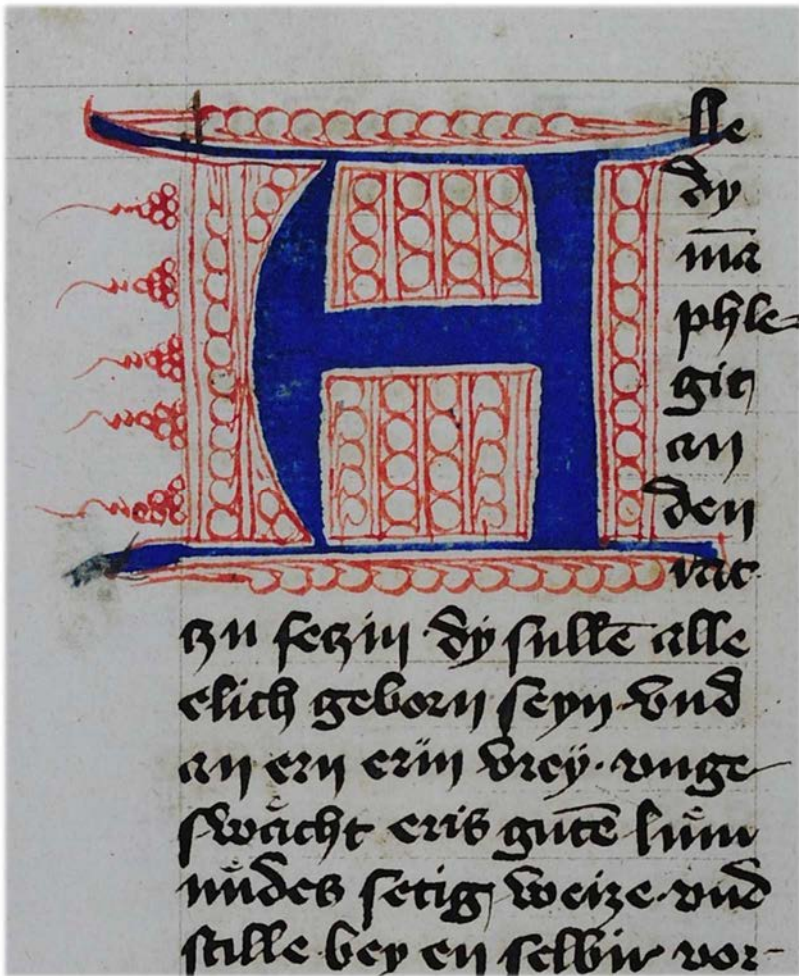 Alle
dy
ma̅
phle-
git
an
den
rat
tzu setzin dy sulle̅ alle
elich geborn seyn vnd
an ern erin vrey. vnge
swacht eris gute̅ lum
mu̇des setig weize. vnd
stille bey en selbir vor-